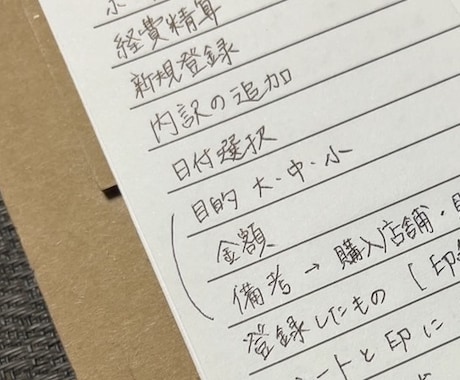 経費精算
新規登録
内訳の追加
日付選択
目的 大・中・小
金額
備考 → 購入店舗・
登録したもの [印
ートと印に